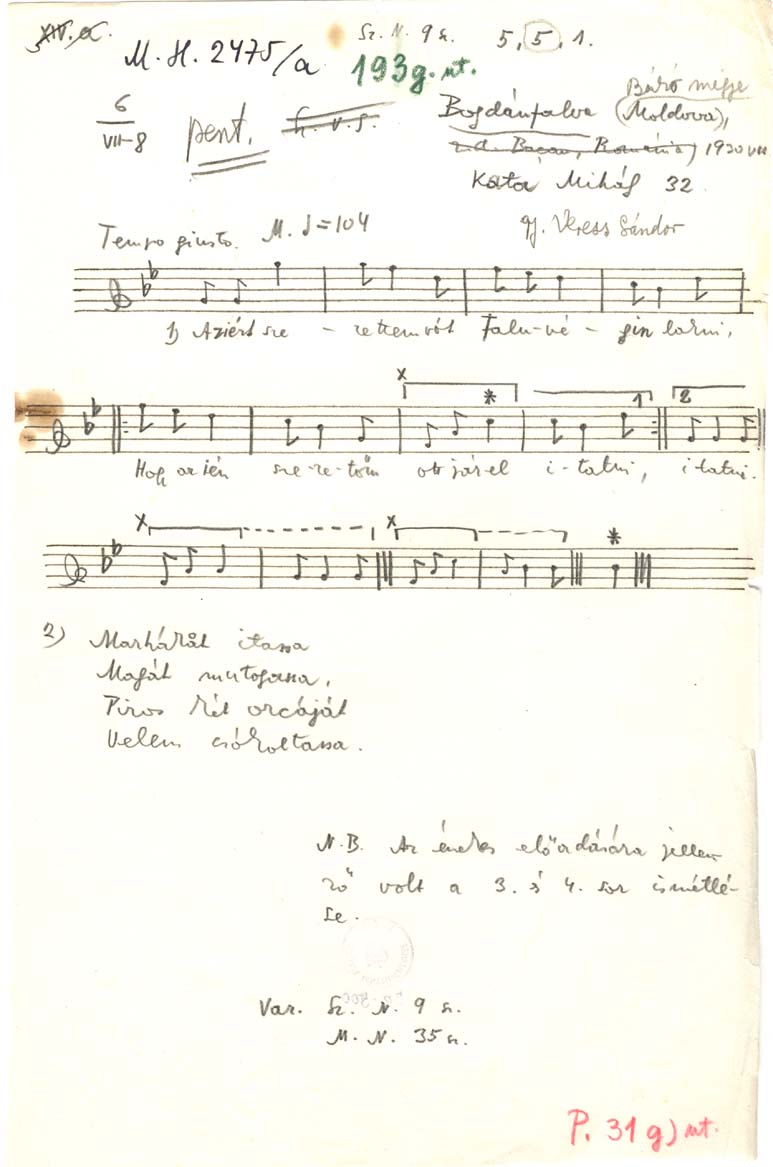 XIV. a.
Sz. N. 9 sz.
5, 5, 1.
M. H. 2475/a
193g. nt.
6
VII-8
pent.
Bákó megye
Bogdánfalva (Moldova),
Bacau, Románia) 1930 VIII
Kata Mihály 32
gy. Veress Sándor
Tempo giusto. M. ♩=104
1) Aziért sze - rettem vót Falu-vé - gin lakni,
x * 1 2
Hogy az ién sze-re-tőm ott jár el i-tatni, i-tatni.
x x *
2) Marháját itassa
Magát mutogassa,
Piros két orcáját
Velem csókoltassa.
N.B. Az énekes előadására jellem-
ző volt a 3. s 4. sor ismétlé-
se.
Var. Sz. N. 9 sz.
M. N. 35 sz.
P. 31 g) nt.